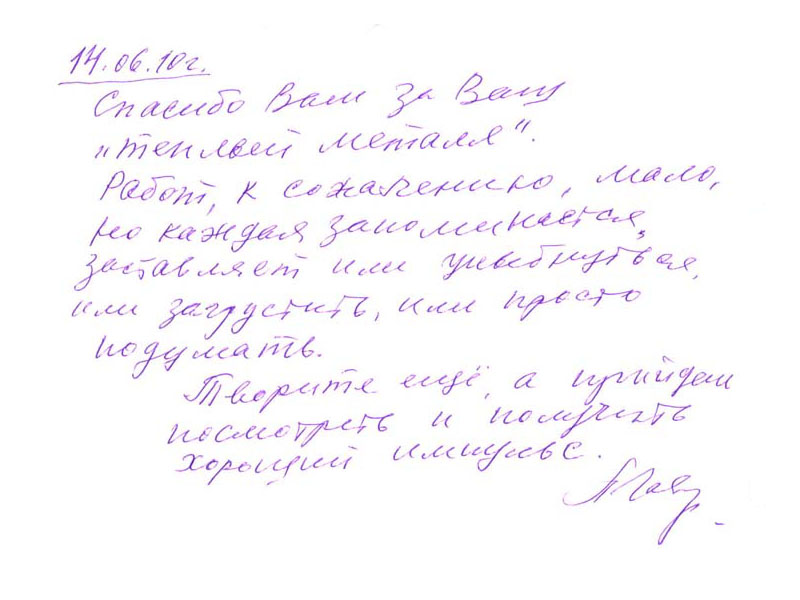 14.06.10г.
Спасибо Вам за Ваш
"теплый металл".
Работ, к сожалению, мало,
но каждая запоминается,
заставляет или улыбнуться,
или загрустить, или просто
подумать.
Творите ещё, а придем
посмотреть и получить
хороший импульс.